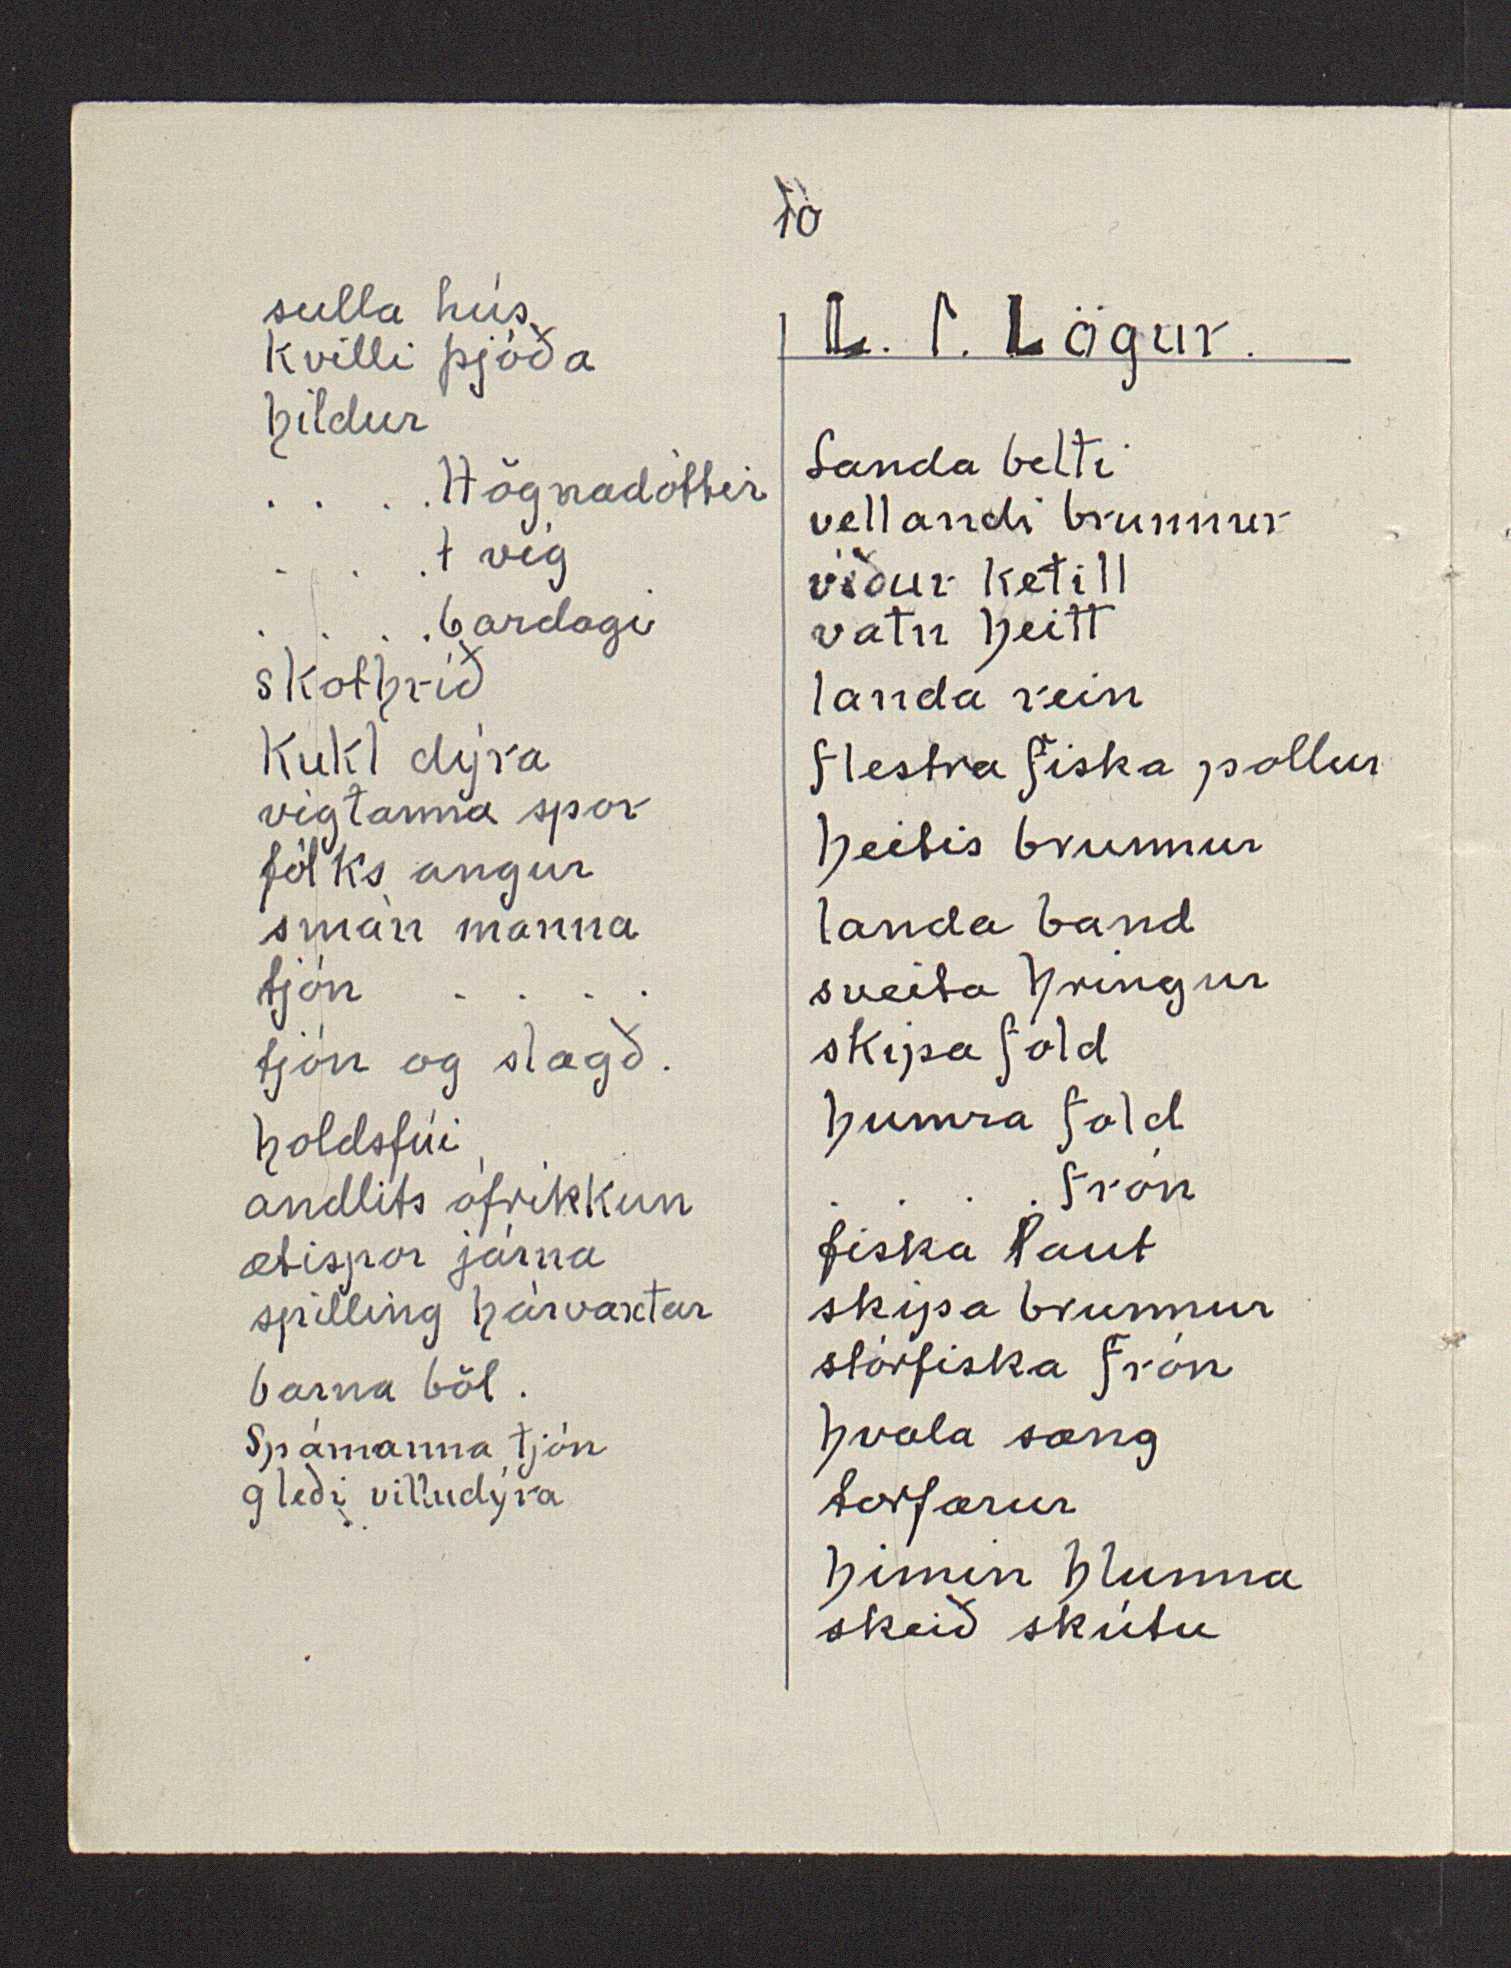 10
sulla hús
Kvilli þjóða
hildur
. . . . Högnadóttir
. . . . t víg
. . . . bardagi
skothríð
Kukl dýra
vígtanna spor
fólks angur
smán manna
tjón . . . .
tjón og slægð.
holdsfúi
andlits ófrikkun
ætispor járna
spilling hárvaxtar
barna böl.
Spámanna tjón
gleði villudýra
L. ᛚ. Lögur.
Landa belti
vellandi brunnur
víður ketill
vatn heitt
landa rein
flestra fiska pollur
heitis brunnur
landa band
sveita hringur
skipa fold
humra fold
. . . . frón
fiska laut
skipa brunnur
stórfiska frón
hvala sæng
torfærur
himin hlunna
skeið skútu